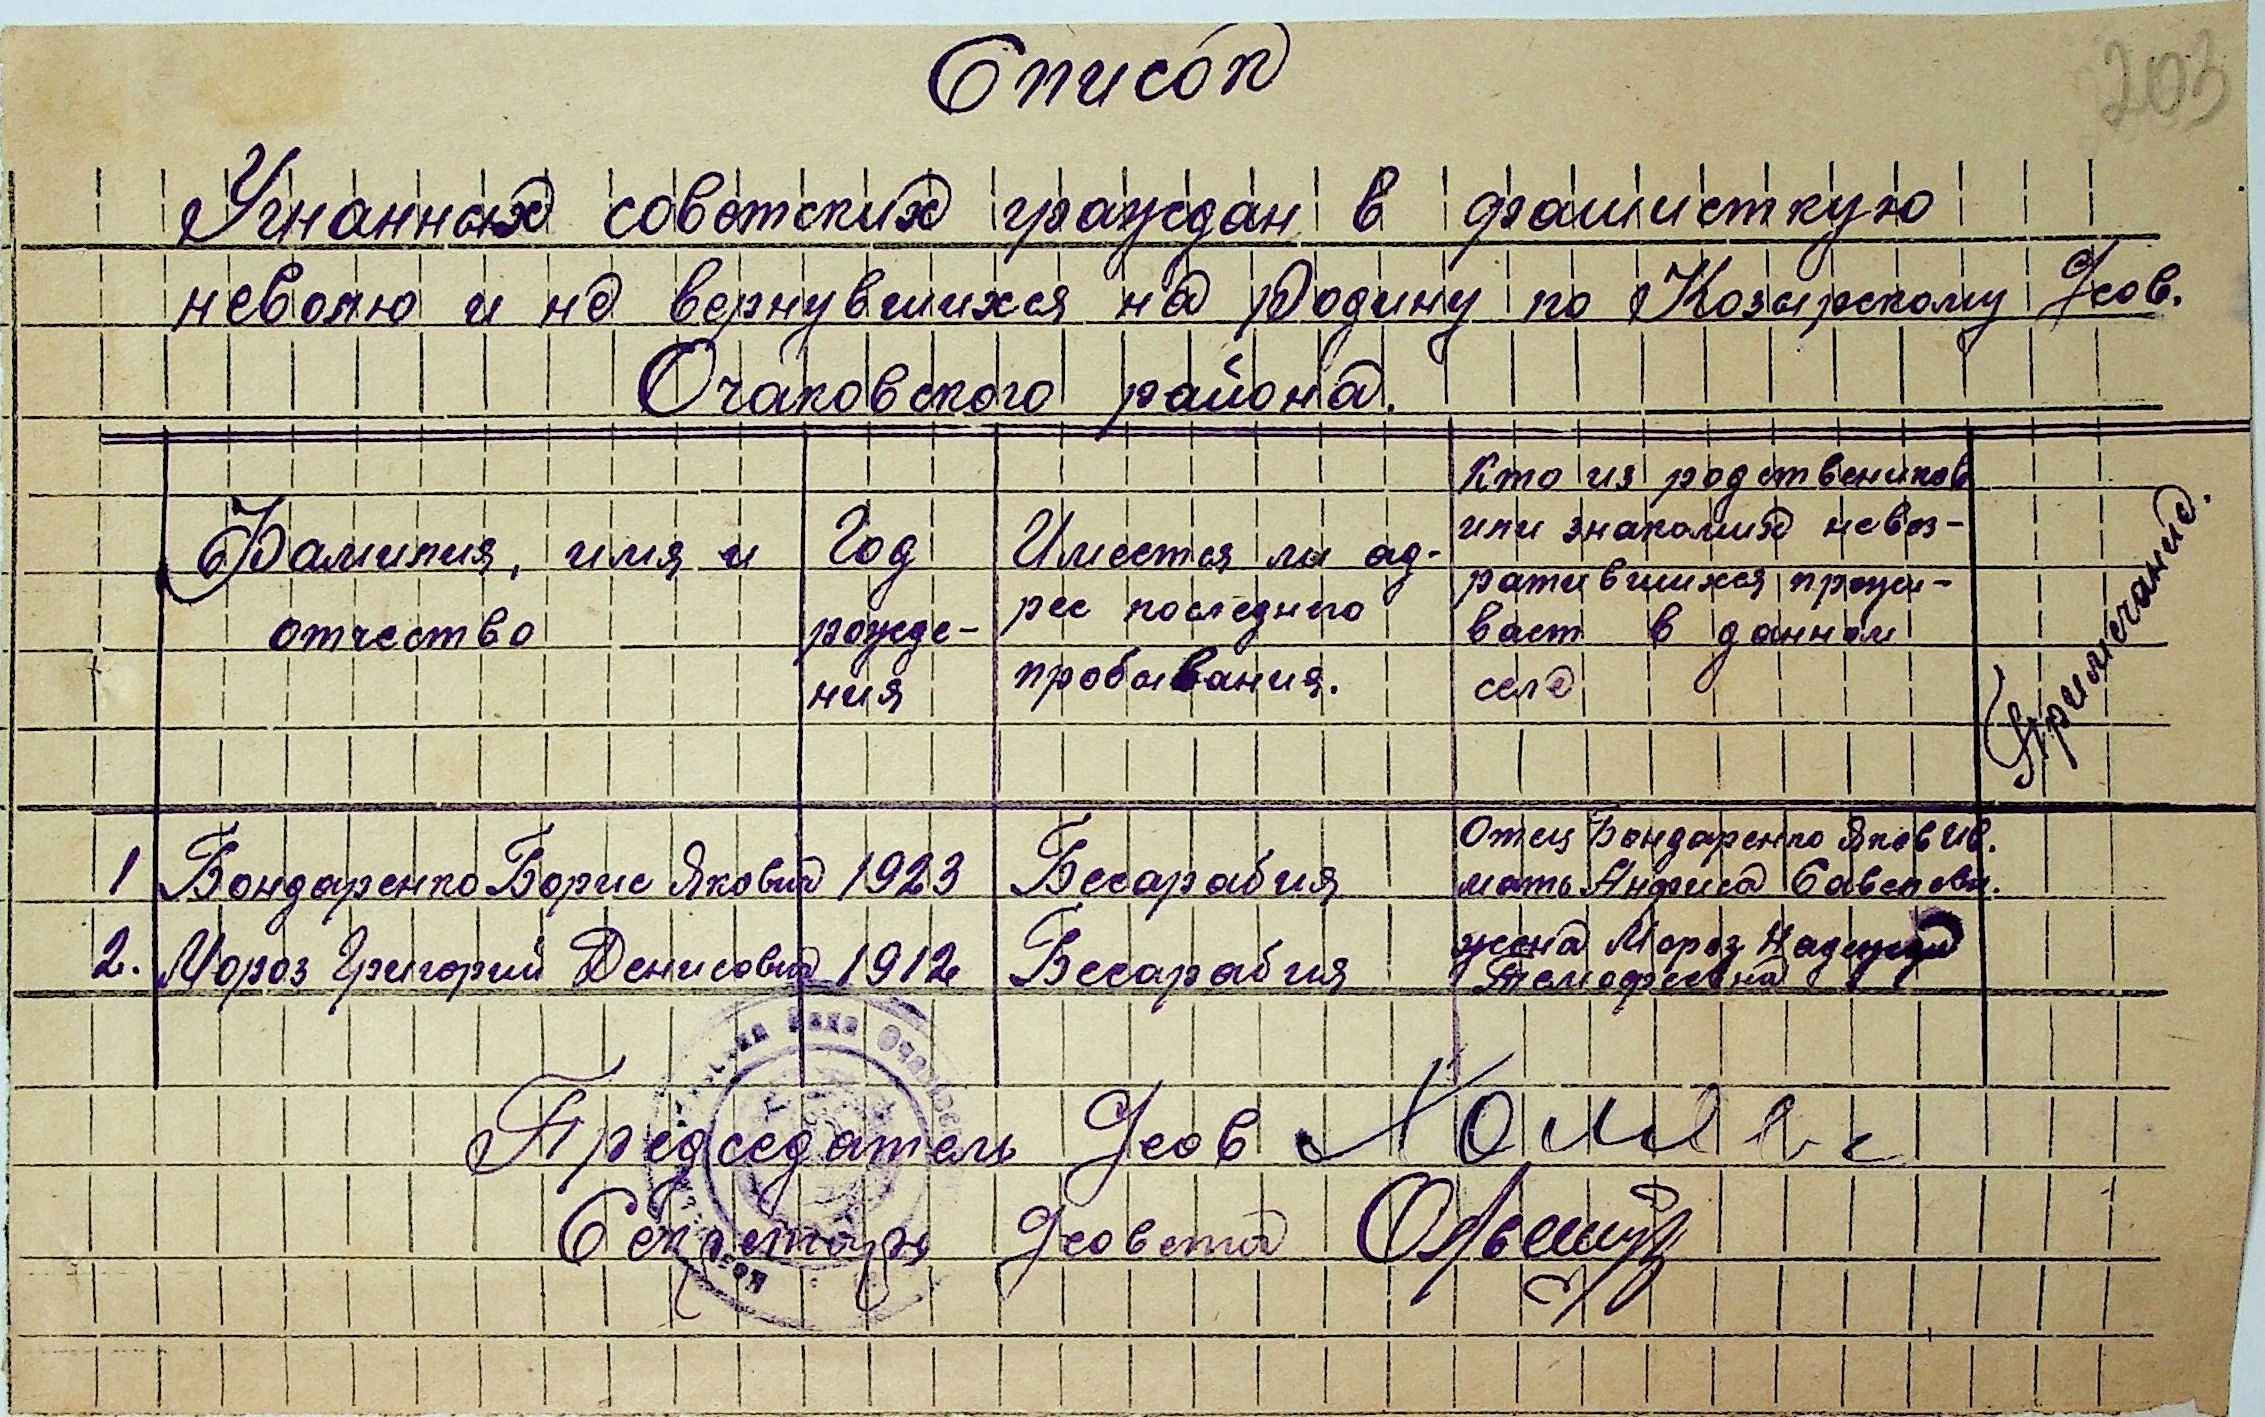 203
Список
Угнанных советских граждан в фашисткую
неволю и не вернувшихся на Родину по Козырскому
Очаковского района.
Фамилия, имя и
отчество
Год
рожде-
ния
Имеется ли ад-
рес последнего
пробывания.
Кто из родствеников
или знакомих невоз-
ратившихся прожи-
вает в данном
селе
Примечание.
1 Бондаренко БорисЯкович 1923 Бесарабия Отец Бондаренко Яков Ив.
мать Анфиса Савелови.
2. Мороз Григорий Денисович 1912 Бесарабия жена Мороз Надежда
Темофеевна
Председатель
Секретарь